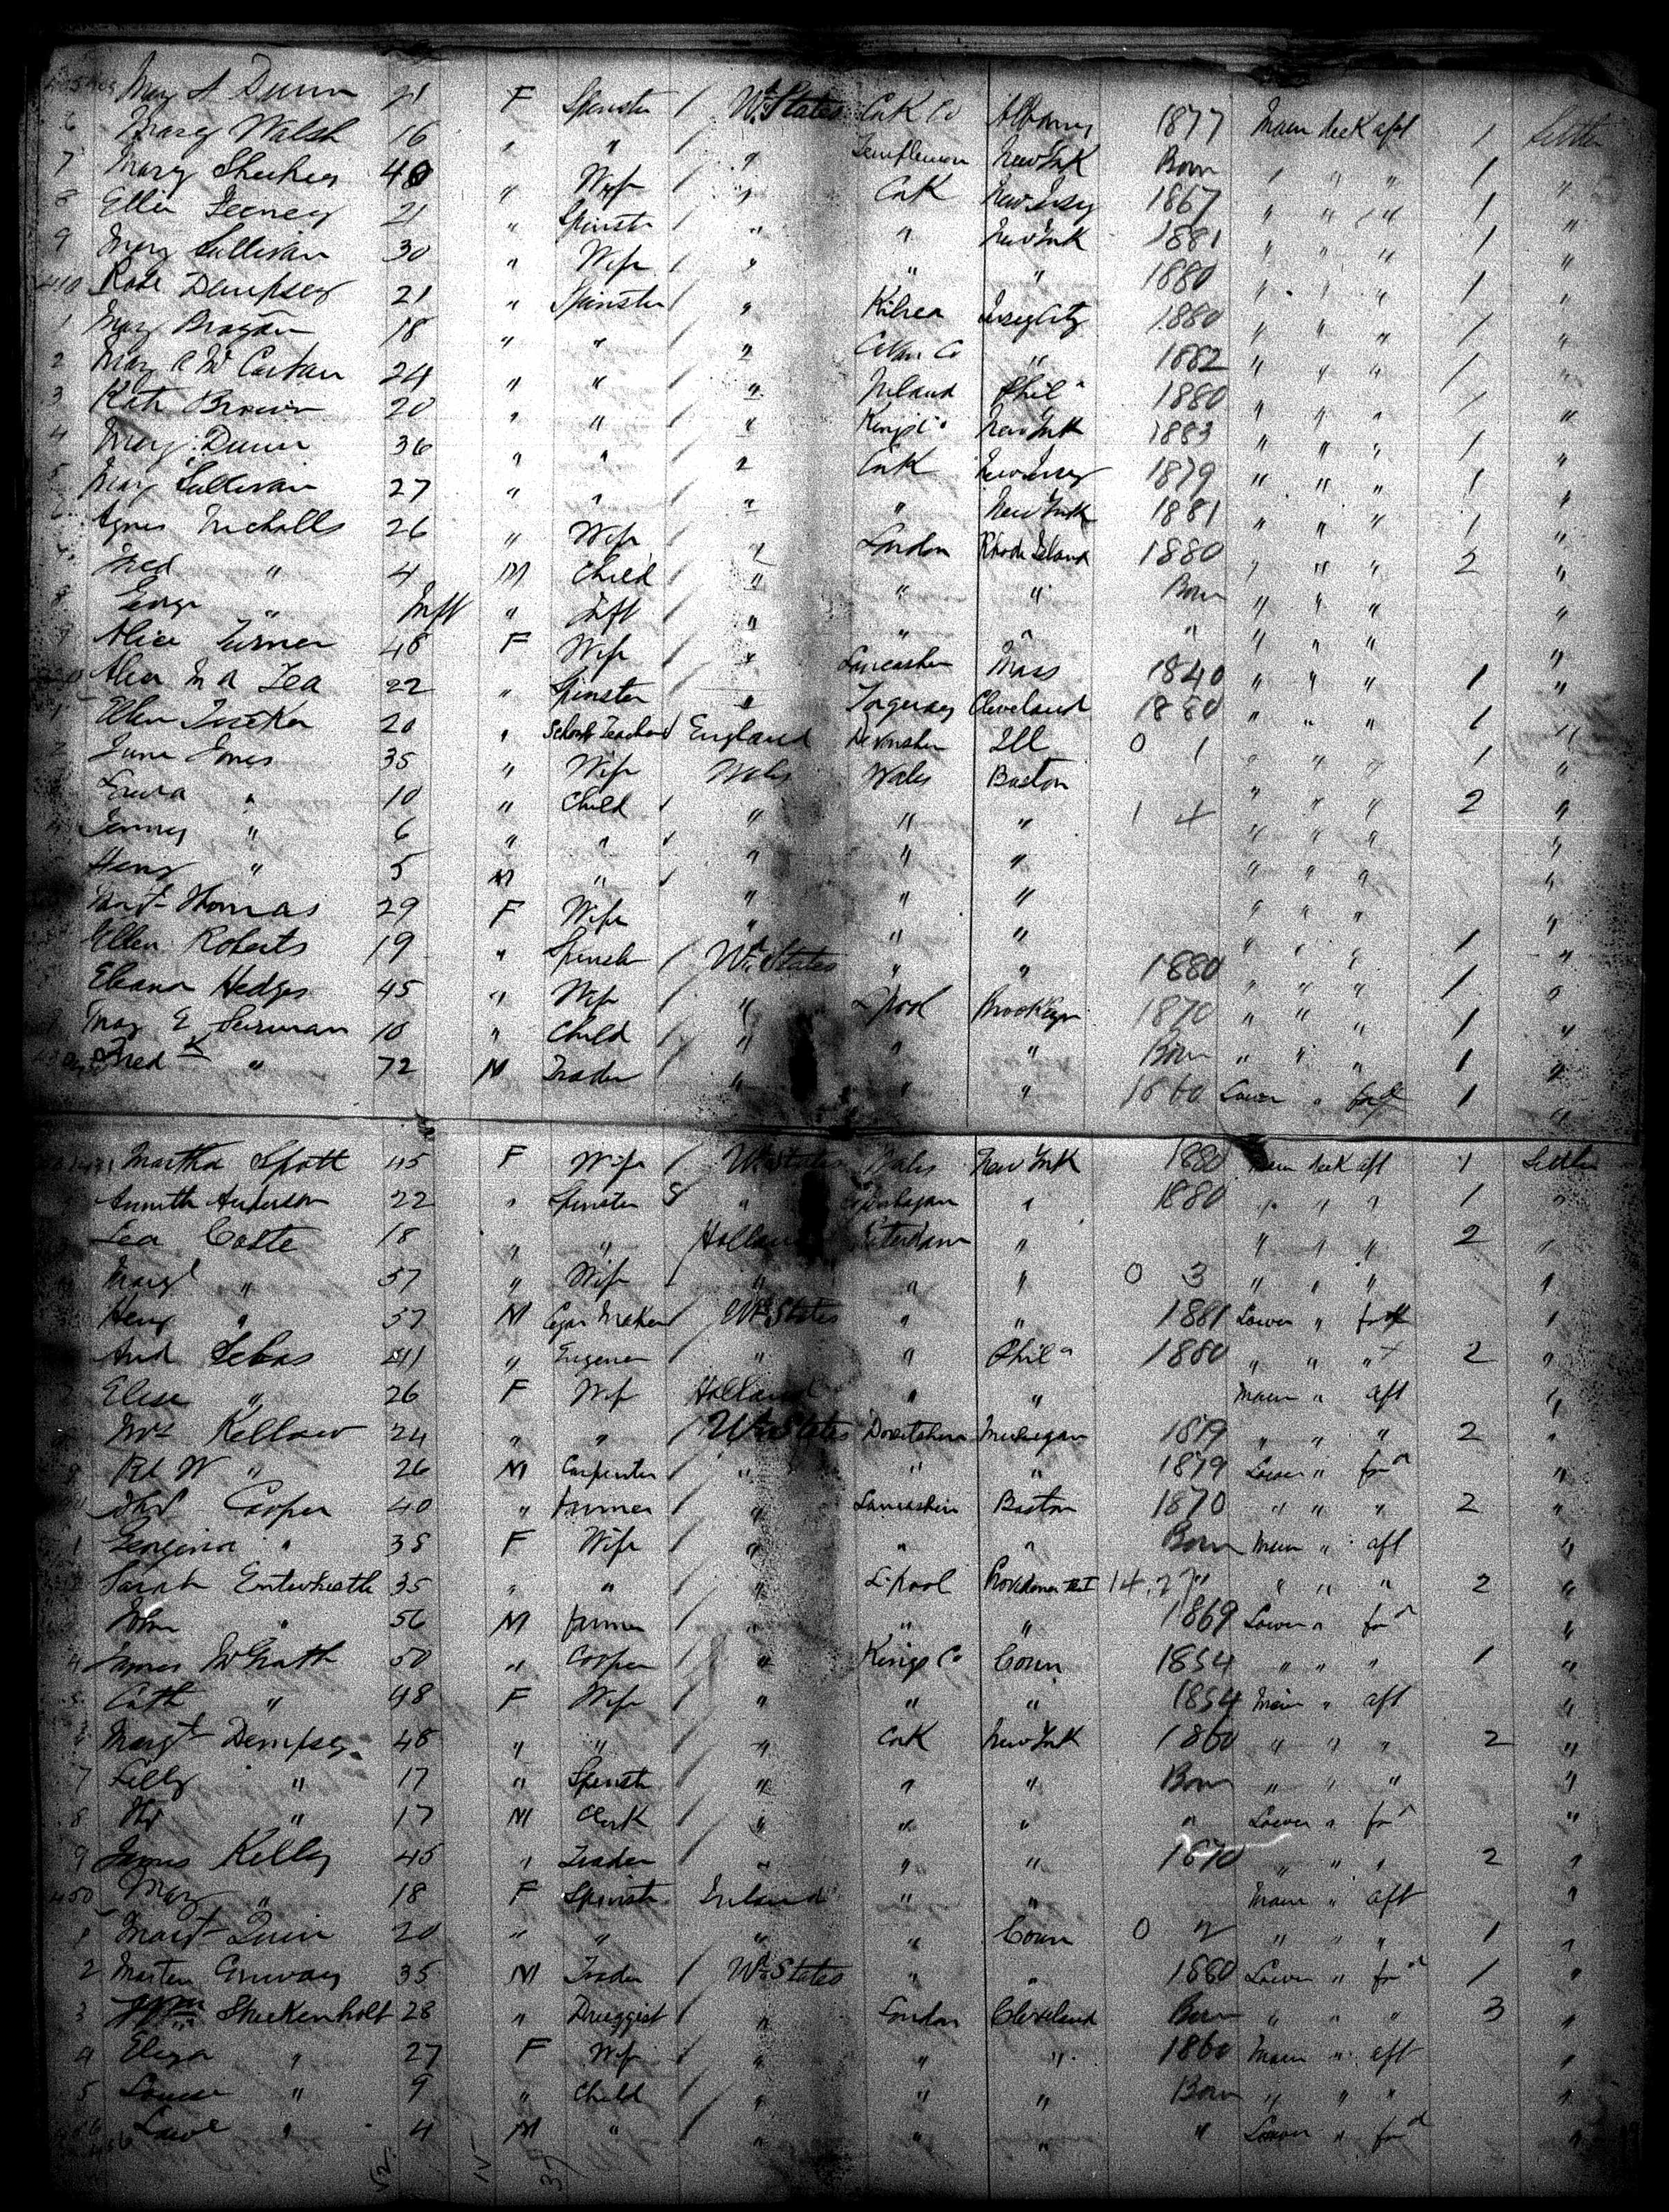 Mary A Dunn 21 F Spinster / Utd States Cork Co Albany 1877 Main deck aft 1 Settler
6 Mary Walsh 16 " " / " New York Born " " " 1 "
7 Mary 40 " Wife / " Cork New Jersey 1867 " " " 1 "
8 Ellen Feeney 21 " Spinster / " " New York 1881 " " " 1 "
9 Mary Sullivan 30 " Wife / " " " 1880 " " " 1 "
410 Rose Dempsey 21 " Spinster / " Kilrea Jersey City 1880 " " " 1 "
1 Mary Brogan 18 " " / " Cavan Co " 1882 " " " 1 "
2 Mary A McCartan 24 " " / " Ireland Phila 1880 " " " 1 "
3 Kate Brown 20 " " / " Kings Co New York 1883 " " " 1 "
4 Mary Dunn 36 " " / " Cork New Jersey 1879 " " " 1 "
5 Mary Sullivan 27 " " / " " New York 1881 " " " 1 "
Agnes Nicholls 26 " Wife / " London Rhode Island 1880 " " " 2 "
Fred " 4 M Child / " " " Born " " " "
8 George " Inft " Inft / " " " " " " " "
Alice Turner 48 F Wife / " Lancashire Mass 1840 " " " 1 "
Alice M A Lea 22 " Spinster / " Torquay Cleveland 1880 " " " 1 "
1 Ellen Tucker 20 " School Teacher / England Devonshire Ill 0 1 " " " 1 "
Jones 35 " Wife Wales Wales Boston " " " 2 "
" 10 " Child / " " " 1 4 " " " "
Jenny " 6 " " / " " " " " " "
Henry " 5 M " / " " " " " " "
Margt Thomas 29 F Wife " " " " " " 1 "
Ellen Roberts 19 " Spinster / Utd States " " 1880 " " " 1 "
Hedges 45 " Wife / " L'pool Brooklyn 1870 " " " 1 "
Mary E 10 " Child / " " " Born " " " 1 "
Fred K " 72 M Trader / " " " 1860 Lower " ford 1 "
Martha Spott 45 F Wife / Utd States Wales New York 1880 Main deck aft 1 Settler
Anderson 22 " Spinster S " Copenhagen " 1880 " " " 1 "
Lea Coste 18 " " Holland " " " " 2 "
Margt " 57 " Wife / " " " 0 3 " " " "
Henry " 57 M Cigar Maker / Utd States " " 1881 Lower " ford "
And 41 " Engineer / " " Phila 1880 " " " 2 "
Elise " 26 F Wife Holland " " Main " aft "
Mrs Kellow 24 " " / Utd States Dorsetshire Michigan 1879 " " " 2 "
9 Rt W " 26 M Carpenter / " " " 1879 Lower " ford "
Cooper 40 " Farmer / " Lancashire Boston 1870 " " " 2 "
1 Georgina " 38 F Wife / " " " Born Main " aft "
Sarah Entwhistle 35 " " / " L'pool Providence R I 14.27 " " " 2 "
John " 56 M Farmer / " " " 1869 Lower " ford "
4 James McGrath 50 " Cooper / " Kings Co Conn 1854 " " " 1 "
5 Cath " 48 F Wife / " " " 1854 Main " aft "
Margt Dempsey 48 " " / " Cork New York 1860 " " " 2 "
7 Lilly " 17 " Spinster / " " " Born " " " "
8 " 17 M Clerk / " " " " Lower " ford "
9 James Kelly 45 " Trader / " " " 1870 " " " 2 "
450 Mary " 18 F Spinster Ireland " " Main " aft "
1 Margt Quin 20 " " " " Conn 0 2 " " " 1 "
2 Marten 35 M Trader / Utd States " " 1880 Lower " ford 1 "
3 Wm Stuckenholt 28 " Druggist / " London Cleveland Born " " " 3 "
4 Eliza " 27 F Wife / " " " 1860 Main " aft "
5 Louise " 9 " Child / " " " Born " " " "
456 " 4 M " / " " " " Lower " ford "